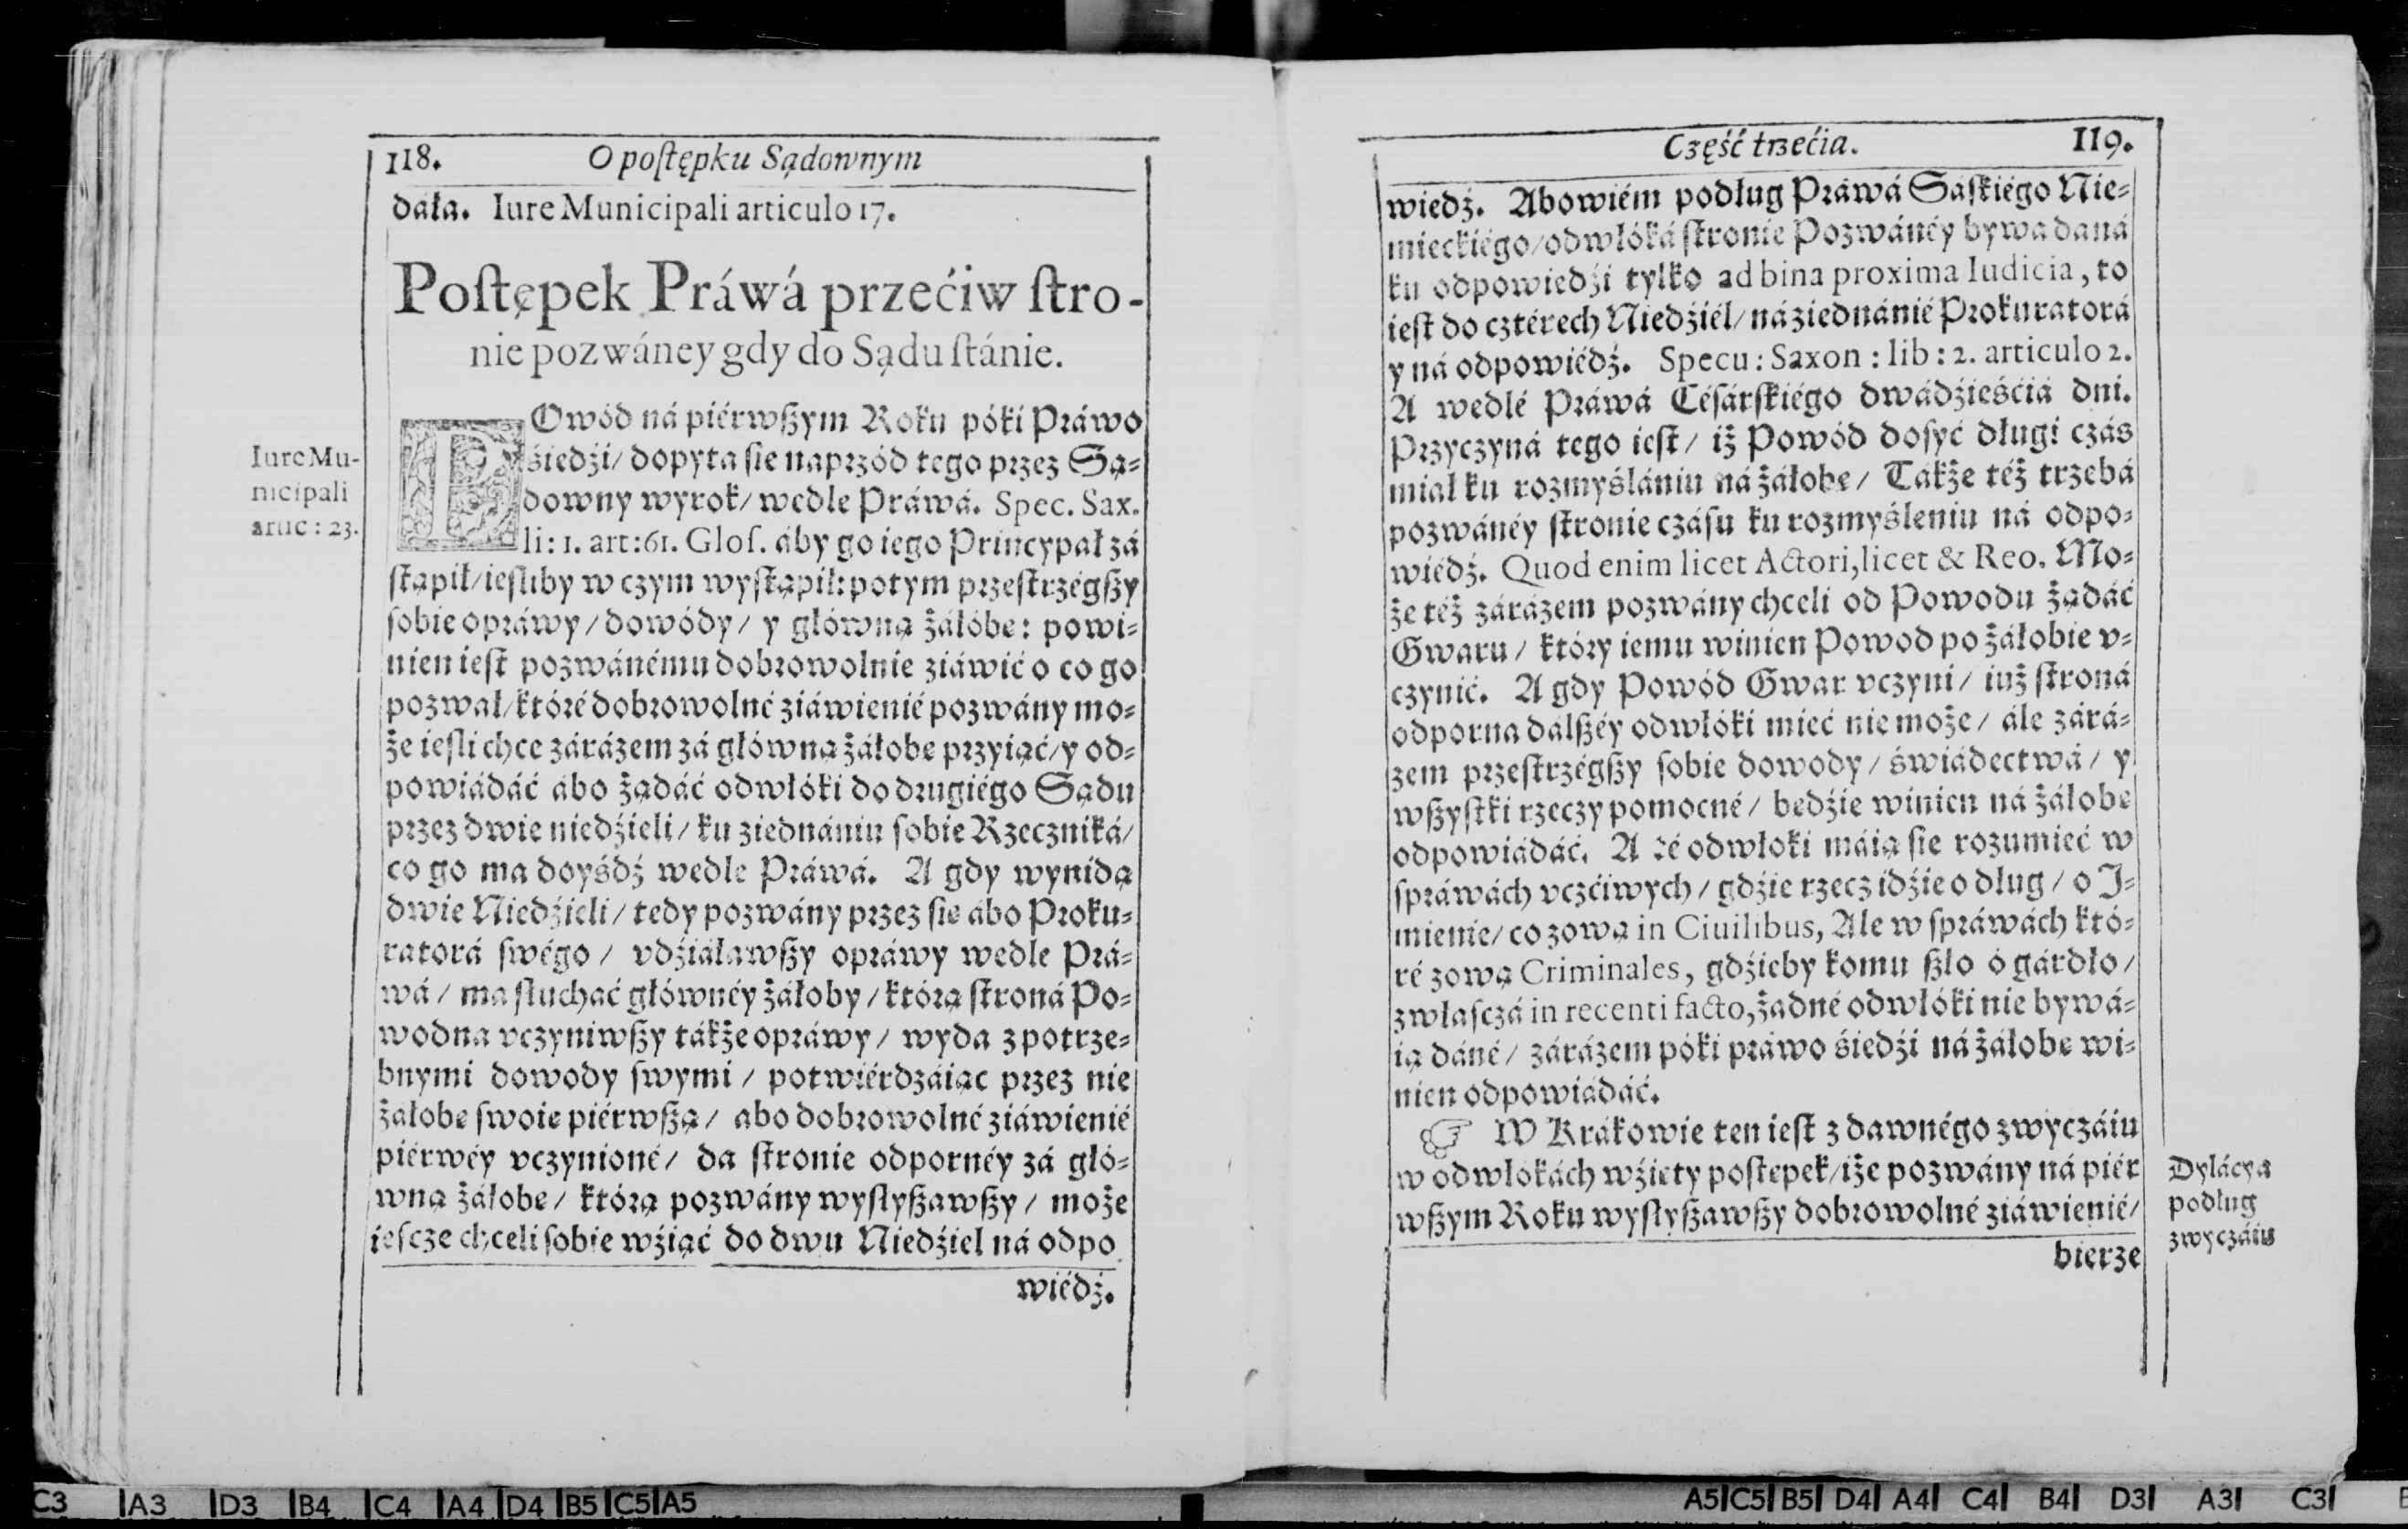 118. O poſtępku Sądownym
dáła. Iure Municipali articulo 17.
Poſtępek Práwá przećiw ſtro-
nie pozwáney gdy do Sądu ſtánie.
Iure Mu-
nicipali
artic: 23.
POwód ná piérwßym Roku póki Práwo
śiedźi/ dopyta ſie naprzód tego przez Są-
downy wyrok/ wedle Práwá. Spec. Sax.
li: 1. art: 61. Gloſ. áby go iego Princypał zá
ſtąpił/ ieſliby w czym wyſtąpił: potym przeſtrzégßy
ſobie opráwy/ dowódy/ y główną żáłóbe: powi-
nien ieſt pozwánému dobrowolnie ziáwić o co go
pozwał/ któré dobrowolné ziáwienié pozwány mo-
że ieſli chce zárázem zá główną żáłobe przyiąć/ y od-
powiádáć ábo żądáć odwłóki do drugiégo Sądu
przez dwie niedźieli/ ku ziednániu ſobie Rzeczniká/
co go ma doyśdź wedle Práwá. A gdy wynidą
dwie Niedźieli/ tedy pozwány przez ſie ábo Proku-
ratorá ſwégo/ vdźiáławßy opráwy wedle Prá-
wá/ ma ſłucháć głównéy żáłoby/ którą ſtroná Po-
wodna vczyniwßy tákże opráwy/ wyda z potrze-
bnymi dowody ſwymi/ potwiérdzáiąc przez nie
żáłobe ſwoie piérwßą/ abo dobrowolné ziáwienié
piérwéy vczynioné/ da ſtronie odpornéy zá głó-
wną żáłobe/ którą pozwány wyſłyßawßy/ może
ieſcze chceli ſobie wźiąć do dwu Niedźiel ná odpo
wiédź.
Część trzećia. 119.
wiedź. Abowiém podług Práwá Sáſkiégo Nie-
mieckiégo/ odwłóká ſtronie Pozwánéy bywa daná
ku odpowiedźi tylko ad bina proxima Iudicia, to
ieſt do cztérech Niedźiél/ ná ziednánié Prokuratorá
y ná odpowiédź. Specu: Saxon: lib: 2. articulo 2.
A wedlé Práwá Céſárſkiégo dwádźieśćiá dni.
Przyczyná tego ieſt/ iż Powód doſyć długi czás
miał ku rozmyślániu ná żáłobe/ Tákże téż trzebá
pozwánéy ſtronie czáſu ku rozmyśleniu ná odpo-
wiédź. Quod enim licet Actori, licet & Reo. Mo-
że téż zárázem pozwány chceli od Powodu żądáć
Gwaru/ który iemu winien Powod po żáłobie v-
czynić. A gdy Powód Gwar vczyni/ iuż ſtroná
odporna dálßéy odwłóki mieć nie może/ ále zárá-
zem przeſtrzégßy ſobie dowody/ świádectwá/ y
wßyſtki rzeczy pomocné/ bedźie winien ná żáłobe
odpowiádáć. A té odwłoki máią ſie rozumieć w
ſpráwách vczćiwych/ gdźie rzecz idźie o dług/ o J-
mienie/ co zową in Ciuilibus, Ale w ſpráwách któ-
ré zową Criminales, gdźieby komu ßło ó gárdło/
zwłaſczá in recenti facto, żadné odwłóki nie bywá-
ią dáné/ zárázem póki práwo śiedźi ná żáłobe wi-
nien odpowiádáć.
☞ W Krákowie ten ieſt z dawnégo zwyczáiu
w odwłókách wźiety poſtepek/ iże pozwány ná piér
wßym Roku wyſłyßawßy dobrowolné ziáwienié/
bierze
Dylácya
podług
zwyczáiu
C3 A3 D3 B4 C4 A4 D4 B5 C5 A5
A5 C5 B5 D4 A4 C4 B4 D3 A3 C3